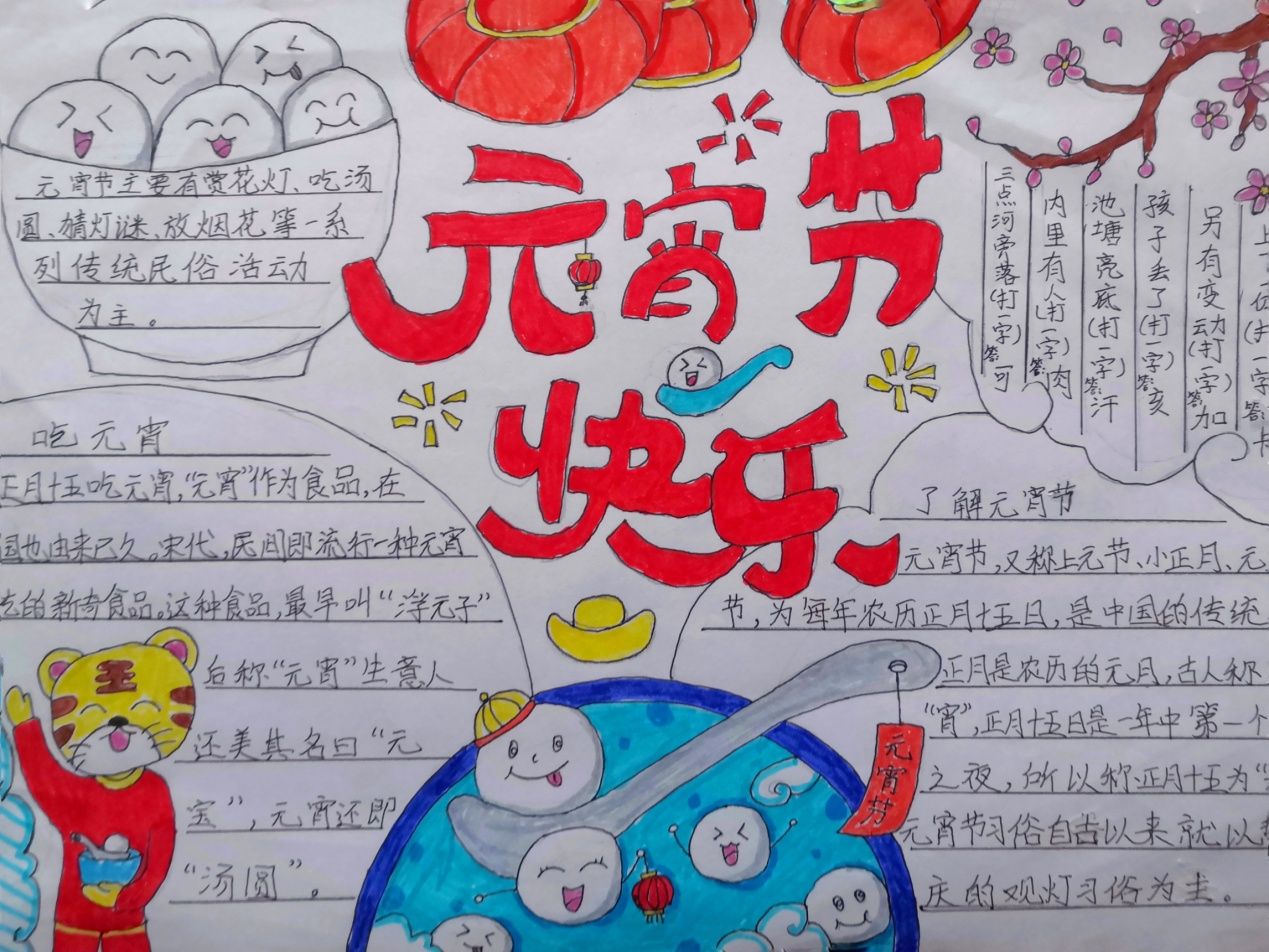 元宵节
快乐
元宵节主要有赏花灯、吃汤
圆、猜灯谜、放烟花等一系
列传统民俗活动
为主。
三点河旁落(打一字)答:可
内里有人(打一字)答:肉
池塘亮底(打一字)答:汗
孩子丢了(打一字)答:亥
另有变动(打一字)答:加
吃元宵
正月十五吃元宵,“元宵”作为食品,在
国也由来已久。宋代,民间即流行一种元宵
吃的新奇食品。这种食品,最早叫“浮元子”
后称“元宵”生意人
还美其名曰“元
宝”,元宵还即
“汤圆”。
了解元宵节
元宵节,又称上元节、小正月、元
节,为每年农历正月十五日,是中国的传统
正月是农历的元月,古人称
“宵”,正月十五日是一年中第一个
之夜,所以称正月十五为“
元宵节习俗自古以来就以
庆的观灯习俗为主。
元宵节